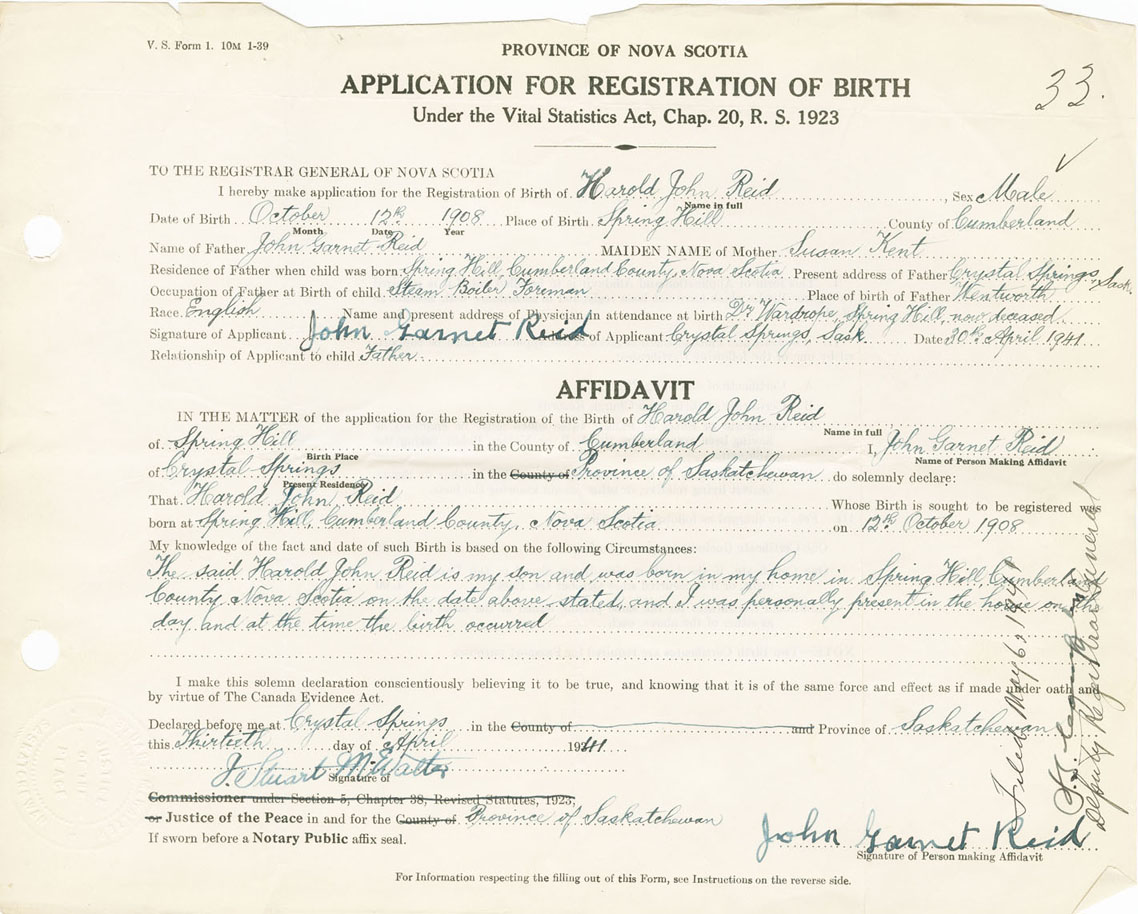 V. S. Form 1. 10M 1-39
PROVINCE OF NOVA SCOTIA
33.
APPLICATION FOR REGISTRATION OF BIRTH
Under the Vital Statistics Act, Chap. 20, R. S. 1923
TO THE REGISTRAR GENERAL OF NOVA SCOTIA
I hereby make application for the Registration of Birth of Harold John Reid, Sex Male
Name in full
Date of Birth October 12th 1908 Place of Birth Spring Hill County of Cumberland
Month Date Year
Name of Father John Garnet Reid MAIDEN NAME of Mother Susan Kent
Residence of Father when child was born Spring Hill, Cumberland County, Nova Scotia Present address of Father Crystal Springs, Sask.
Occupation of Father at Birth of child Steam Boiler Foreman Place of birth of Father Wentworth
Race English Name and present address of Physician in attendance at birth Dr Wardrope, Spring Hill, now deceased
Signature of Applicant John Garnet Reid of Applicant Crystal Springs, Sask Date 30th April 1941
Relationship of Applicant to child Father
AFFIDAVIT
IN THE MATTER of the application for the Registration of the Birth of Harold John Reid
Name in full
of Spring Hill in the County of Cumberland I, John Garnet Reid
Birth Place Name of Person Making Affidavit
of Crystal Springs in the County of Province of Saskatchewan do solemnly declare:
Present Residence
That Harold John Reid Whose Birth is sought to be registered was
born at Spring Hill, Cumberland County, Nova Scotia on 12th October 1908
My knowledge of the fact and date of such Birth is based on the following Circumstances:
The said Harold John Reid is my son and was born in my home in Spring Hill, Cumberland
County, Nova Scotia on the date above stated, and I was personally present in the house on the
day and at the time the birth occurred
I make this solemn declaration conscientiously believing it to be true, and knowing that it is of the same force and effect as if made under oath and
by virtue of The Canada Evidence Act.
Declared before me at Crystal Springs in the County of and Province of Saskatchewan
this Thirtieth day of April 1941
J. Stuart McWalter
Signature of
Commissioner under Section 5, Chapter 38, Revised Statutes, 1923,
or Justice of the Peace in and for the County of Province of Saskatchewan
If sworn before a Notary Public affix seal.
John Garnet Reid
Signature of Person making Affidavit
For Information respecting the filling out of this Form, see Instructions on the reverse side.
Filed May 6, 1941
Deputy Registrar General